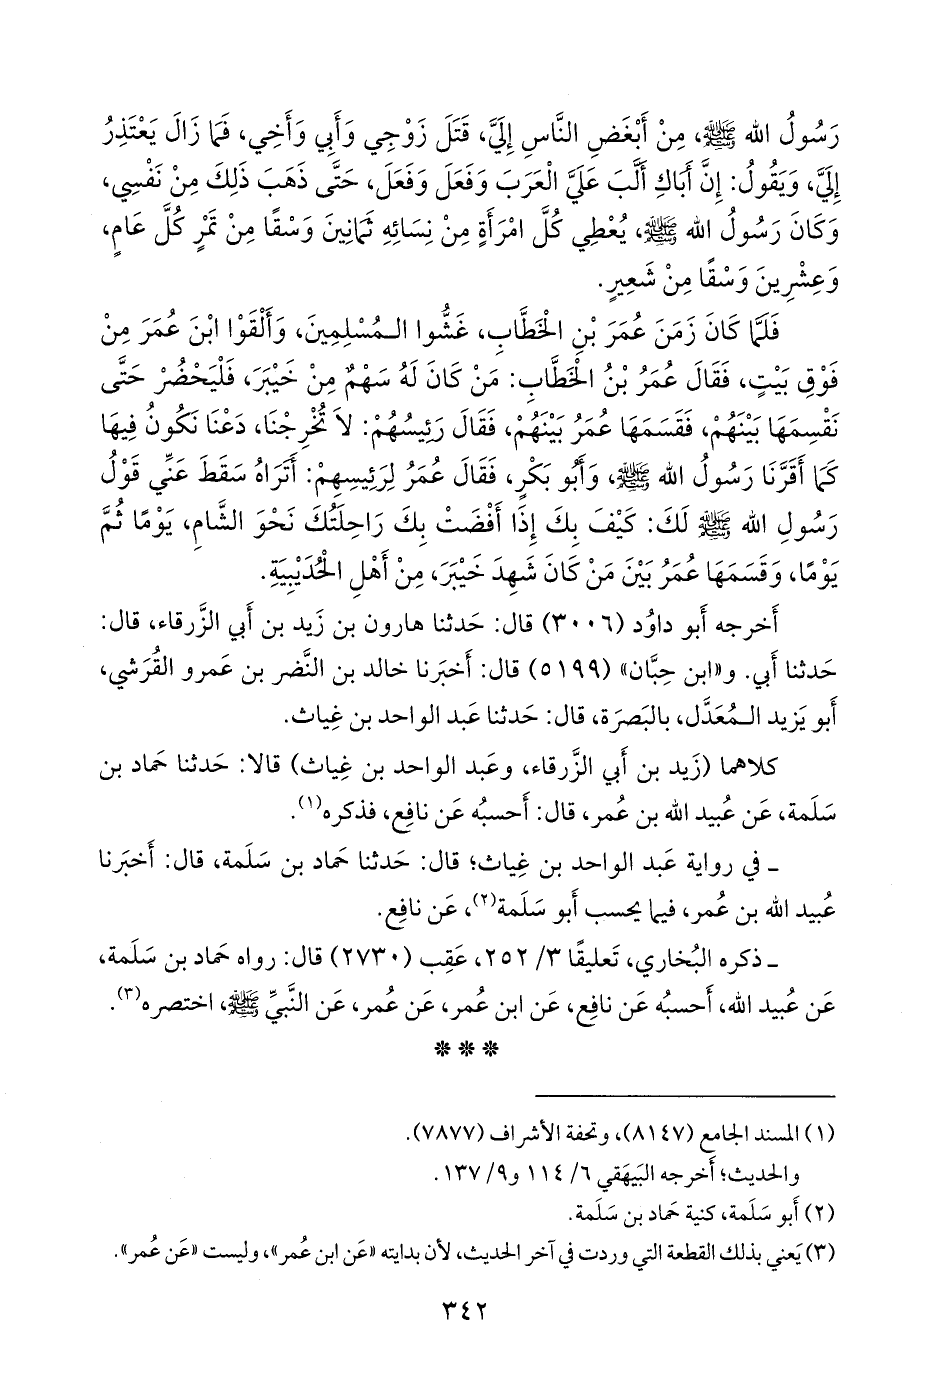 رَسُولُ الله ﷺ، مِنْ أَبْغَضِ النَّاسِ إِلَيَّ، قَتَلَ زَوْجِي وَأَبِي وَأَخِي، فَمَا زَالَ يَعْتَذِرُ
إِلَيَّ، وَيَقُولُ: إِنَّ أَبَاكِ أَلَّبَ عَلَيَّ الْعَرَبَ وَفَعَلَ وَفَعَلَ، حَتَّى ذَهَبَ ذَلِكَ مِنْ نَفْسِي،
وَكَانَ رَسُولُ الله ﷺ، يُعْطِي كُلَّ امْرَأَةٍ مِنْ نِسَائِهِ ثَمَانِينَ وَسْقًا مِنْ تَمْرٍ كُلَّ عَامٍ،
وَعِشْرِينَ وَسْقًا مِنْ شَعِيرٍ.
فَلَمَّا كَانَ زَمَنَ عُمَرَ بْنِ الْخَطَّابِ، غَشُّوا الـمُسْلِمِينَ، وَأَلْقَوْا ابْنَ عُمَرَ مِنْ
فَوْقِ بَيْتٍ، فَقَالَ عُمَرُ بْنُ الْخَطَّابِ: مَنْ كَانَ لَهُ سَهْمٌ مِنْ خَيْبَرَ، فَلْيَحْضُرْ حَتَّى
نَقْسِمَهَا بَيْنَهُمْ، فَقَسَمَهَا عُمَرُ بَيْنَهُمْ، فَقَالَ رَئِيسُهُمْ: لاَ تُخْرِجْنَا، دَعْنَا نَكُونُ فِيهَا
كَمَا أَقَرَّنَا رَسُولُ الله ﷺ، وَأَبُو بَكْرٍ، فَقَالَ عُمَرُ لِرَئِيسِهِمْ: أَتَرَاهُ سَقَطَ عَنِّي قَوْلُ
رَسُولِ الله ﷺ لَكَ: كَيْفَ بِكَ إِذَا أَفْضَتْ بِكَ رَاحِلَتُكَ نَحْوَ الشَّامِ، يَوْمًا ثُمَّ
يَوْمًا، وَقَسَمَهَا عُمَرُ بَيْنَ مَنْ كَانَ شَهِدَ خَيْبَرَ، مِنْ أَهْلِ الْحُدَيْبِيَةِ.
أَخرجه أَبو داوُد (٣٠٠٦) قال: حَدثنا هارون بن زَيد بن أَبي الزَّرقاء، قال:
حَدثنا أَبي. و«ابن حِبَّان» (٥١٩٩) قال: أَخبَرنا خالد بن النَّضر بن عَمرو القُرَشي،
أَبو يَزيد الـمُعَدَّل، بالبَصرَة، قال: حَدثنا عَبد الواحد بن غِياث.
كلاهما (زَيد بن أَبي الزَّرقاء، وعَبد الواحد بن غِياث) قالا: حَدثنا حَماد بن
سَلَمة، عَن عُبيد الله بن عُمر، قال: أَحسبُه عَن نافِع، فذكره(١).
ـ في رواية عَبد الواحد بن غِياث؛ قال: حَدثنا حَماد بن سَلَمة، قال: أَخبَرنا
عُبيد الله بن عُمر، فيما يحسب أَبو سَلَمة(٢)، عَن نافِع.
ـ ذكره البُخاري، تَعليقًا ٣/ ٢٥٢، عَقِب (٢٧٣٠) قال: رواه حَماد بن سَلَمة،
عَن عُبيد الله، أَحسبُه عَن نافِع، عَن ابن عُمر، عَن عُمر، عَن النَّبيِّ ﷺ، اختصره(٣).
* * *
(١) المسند الجامع (٨١٤٧)، وتحفة الأشراف (٧٨٧٧).
والحديث؛ أَخرجه البَيهَقي ٦/ ١١٤ و٩/ ١٣٧.
(٢) أَبو سَلَمة، كنية حَماد بن سَلَمة.
(٣) يَعني بذلك القطعة التي وردت في آخر الحديث، لأن بدايته «عَن ابن عُمر»، وليست «عَن عُمر».
٣٤٢